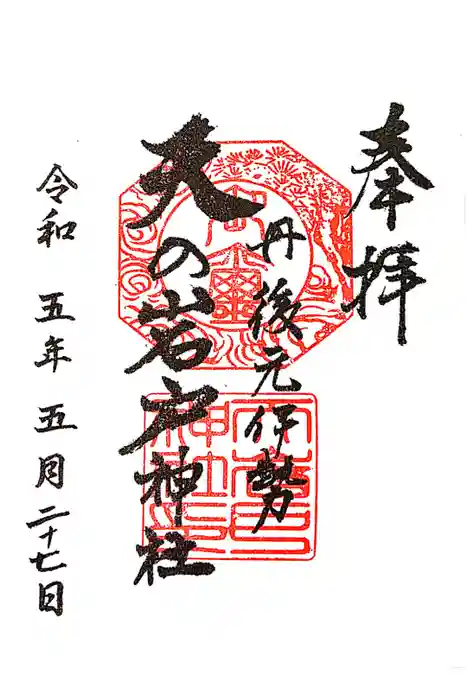 奉拝
丹後元伊勢
天の岩戸神社
令和 五年 五月 二十七日